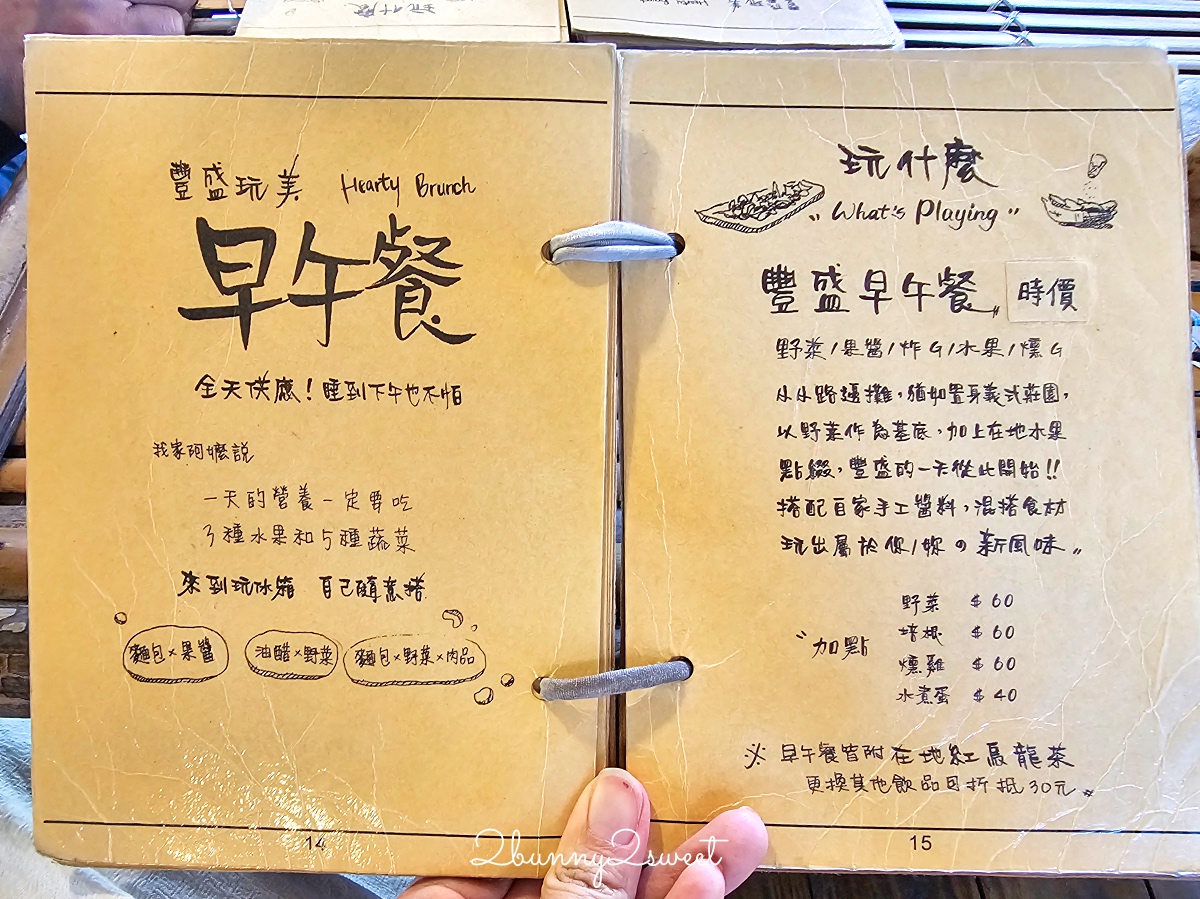 豐盛玩美 Hearty Brunch
早午餐
全天供應！睡到下午也不怕
我家阿嬤說
一天的營養一定要吃
3種水果和5種蔬菜
來到玩冰箱 自己隨意搭
麵包×果醬 油醋×野菜 麵包×野菜×肉品
14
玩什麼
"What's Playing"
豐盛早午餐〃 時價
野菜/果醬/炸G/水果/燻G
小小路邊攤，猶如置身義式莊園，
以野菜作為基底，加上在地水果
點綴，豐盛的一天從此開始!!
搭配自家手工醬料，混搭食材
玩出屬於你/妳の新風味〃
"加點
野菜 $60
培根 $60
燻雞 $60
水煮蛋 $40
※ 早午餐皆附在地紅烏龍茶
更換其他飲品可折抵30元〃
15
2bunny2sweet